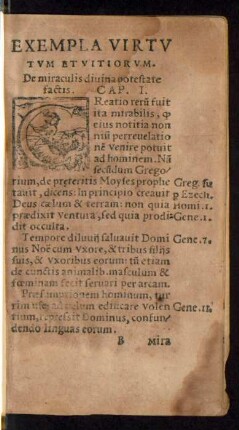 EXEMPLA VIRTV
TVM ET VITIORVM.
De miraculis diuina potestate
factis. CAP. I.
CReatio rerũ fuit
ita mirabilis, ꝙ
eius notitia non
nisi per reuelatio
nē venire potuit
ad hominem. Nã
secũdum Grego-
rium, de præteritis Moyses prophe Greg. su
tauit, dicens: In principio creauit p Ezech.
Deus cælum & terram: non quia homi .1.
prædixit ventura, sed quia prodi= Gene.1.
dit occulta.
Tempore diluuij saluauit Domi Gene.7.
nus Noë cum vxore, & tribus filijs
suis, & vxoribus eorum: tũ etiam
de cunctis animalib. masculum &
fœminam fecit seruari per arcam.
Præsumptionem hominum, tur
rim ad cælum edificare volen Gene.11.
tium, Dominus, confun/
dendo linguas eorum.
B mira